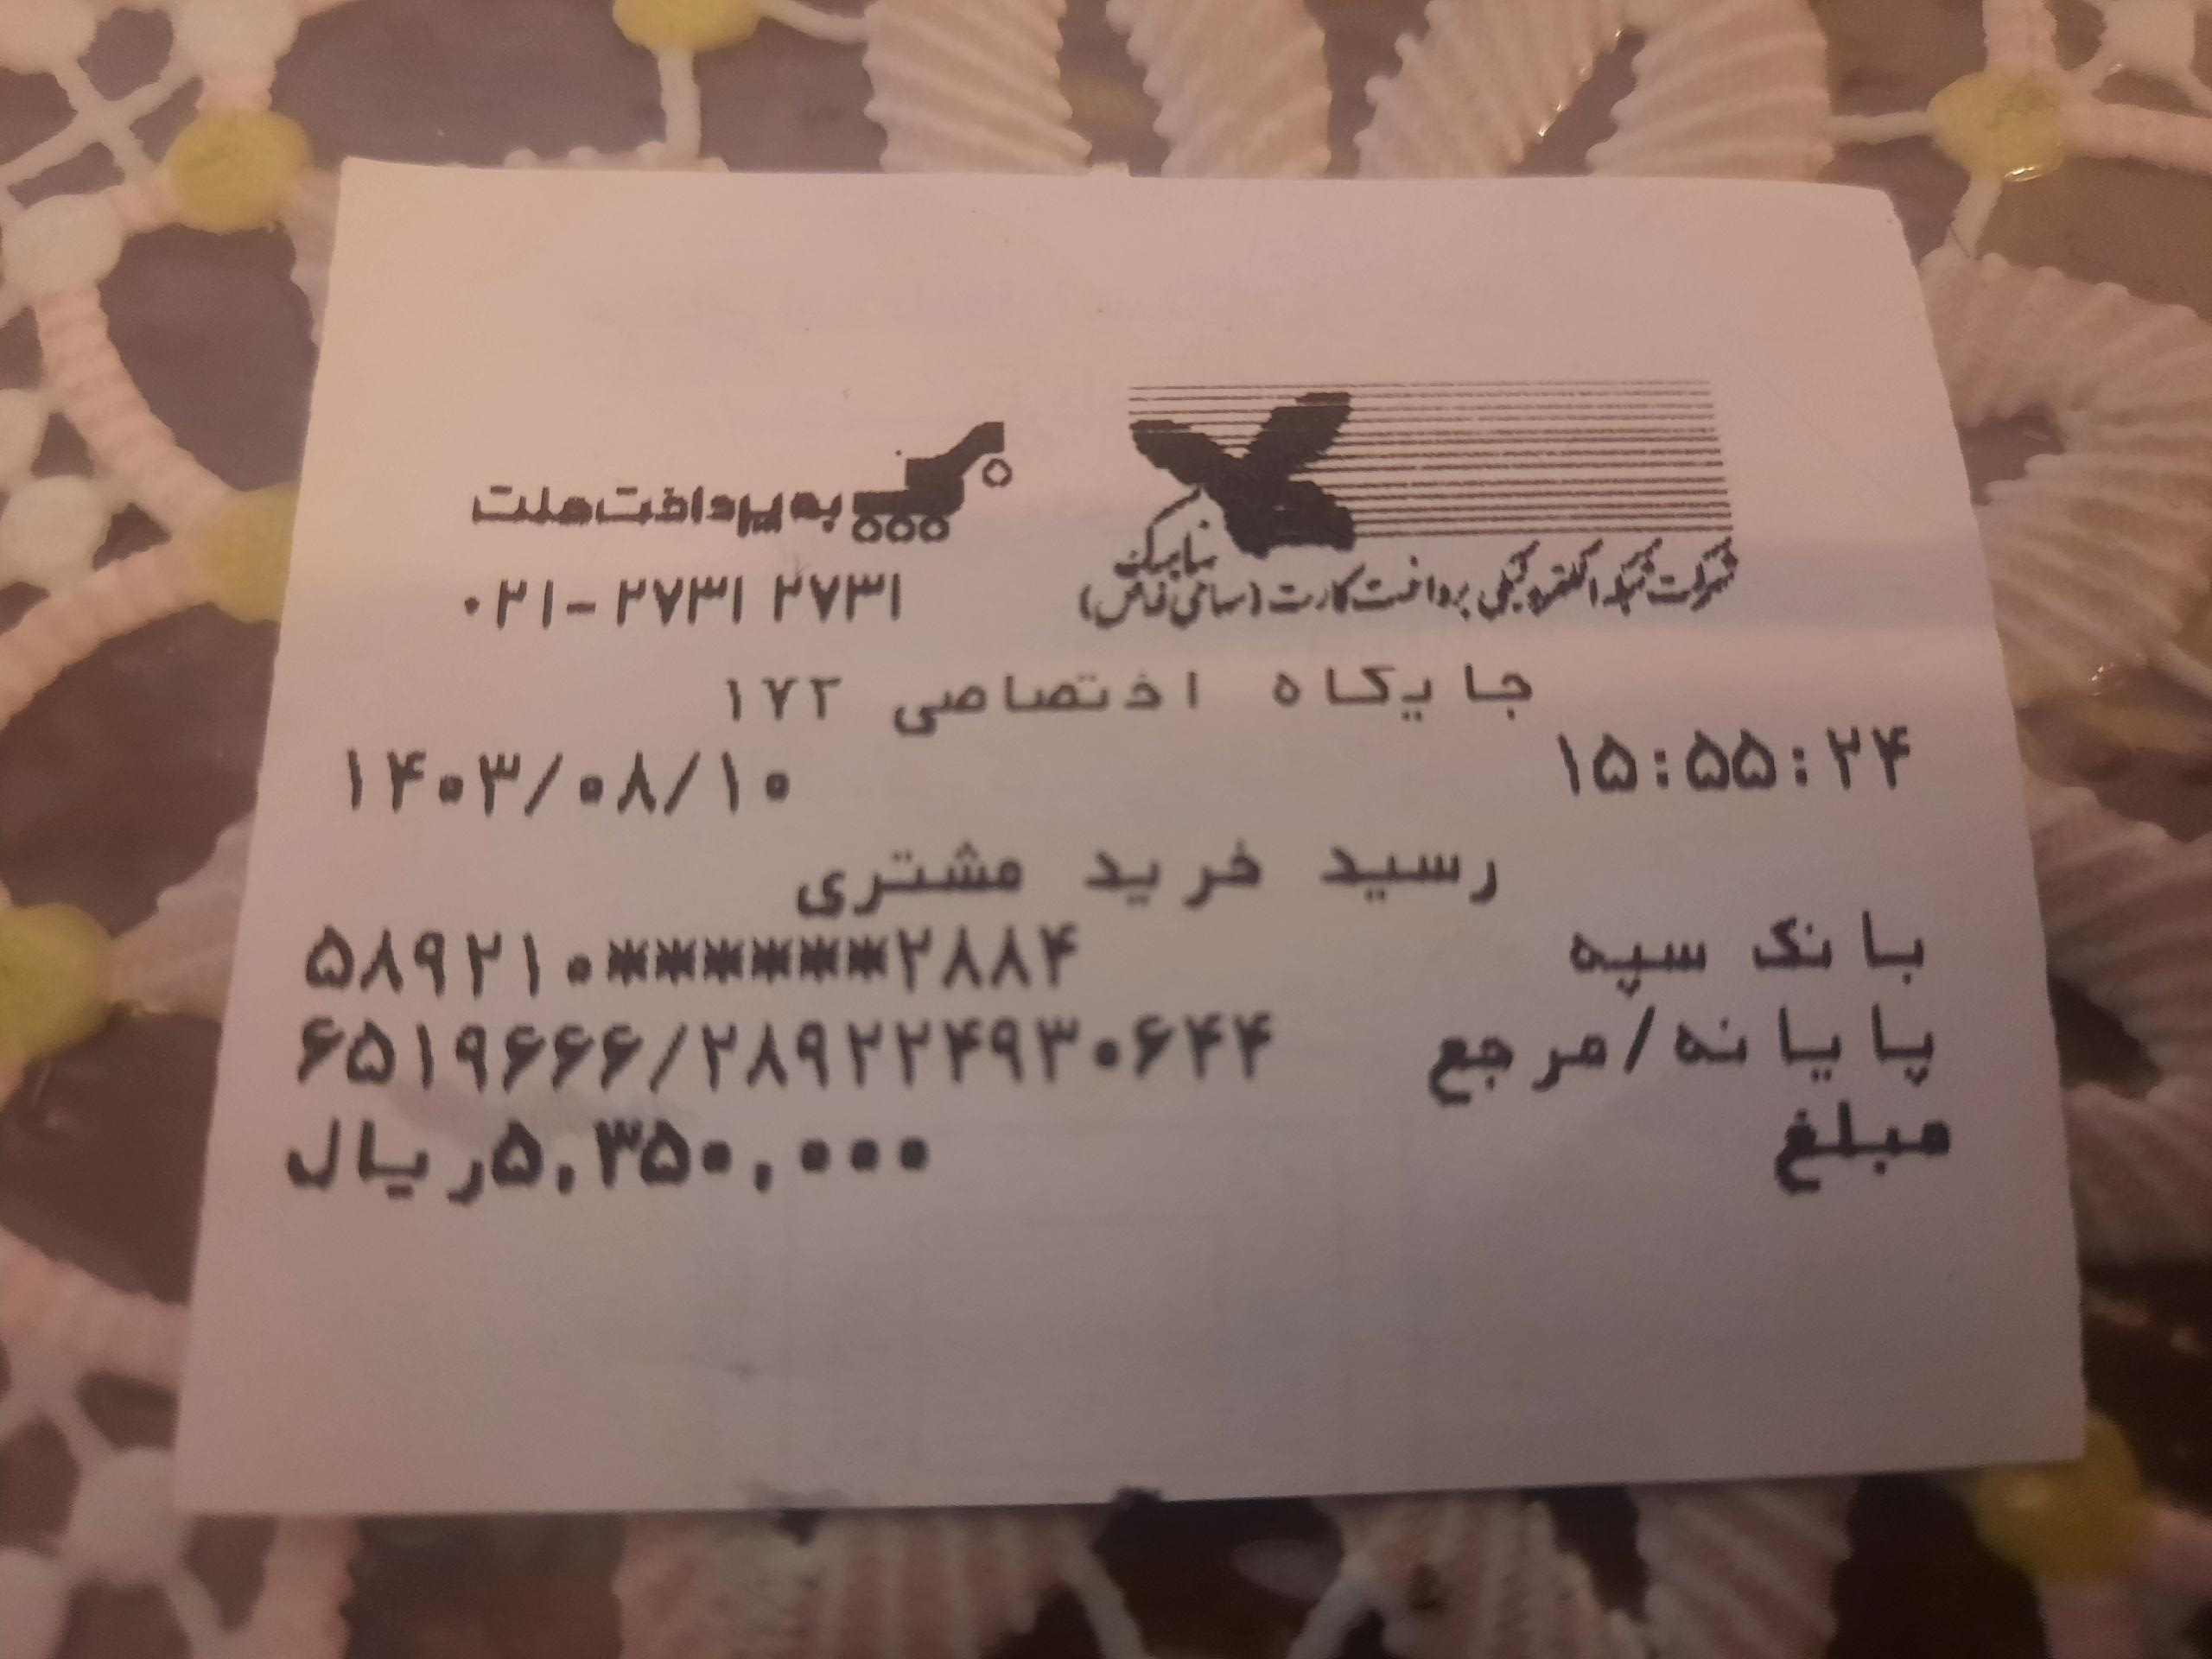 به پرداخت ملت
شرکت شبکه الکترونیکی پرداخت کارت (سهامی خاص)
۰۲۱-۲۷۳۱ ۲۷۳۱
جایگاه اختصاصی ۱۷۲
۱۵:۵۵:۲۴ ۱۴۰۳/۰۸/۱۰
رسید خرید مشتری
بانک سپه ۵۸۹۲۱۰******۲۸۸۴
پایانه/مرجع ۶۵۱۹۶۶۶/۲۸۹۲۲۴۹۳۰۶۴۴
مبلغ ۵,۳۵۰,۰۰۰ریال